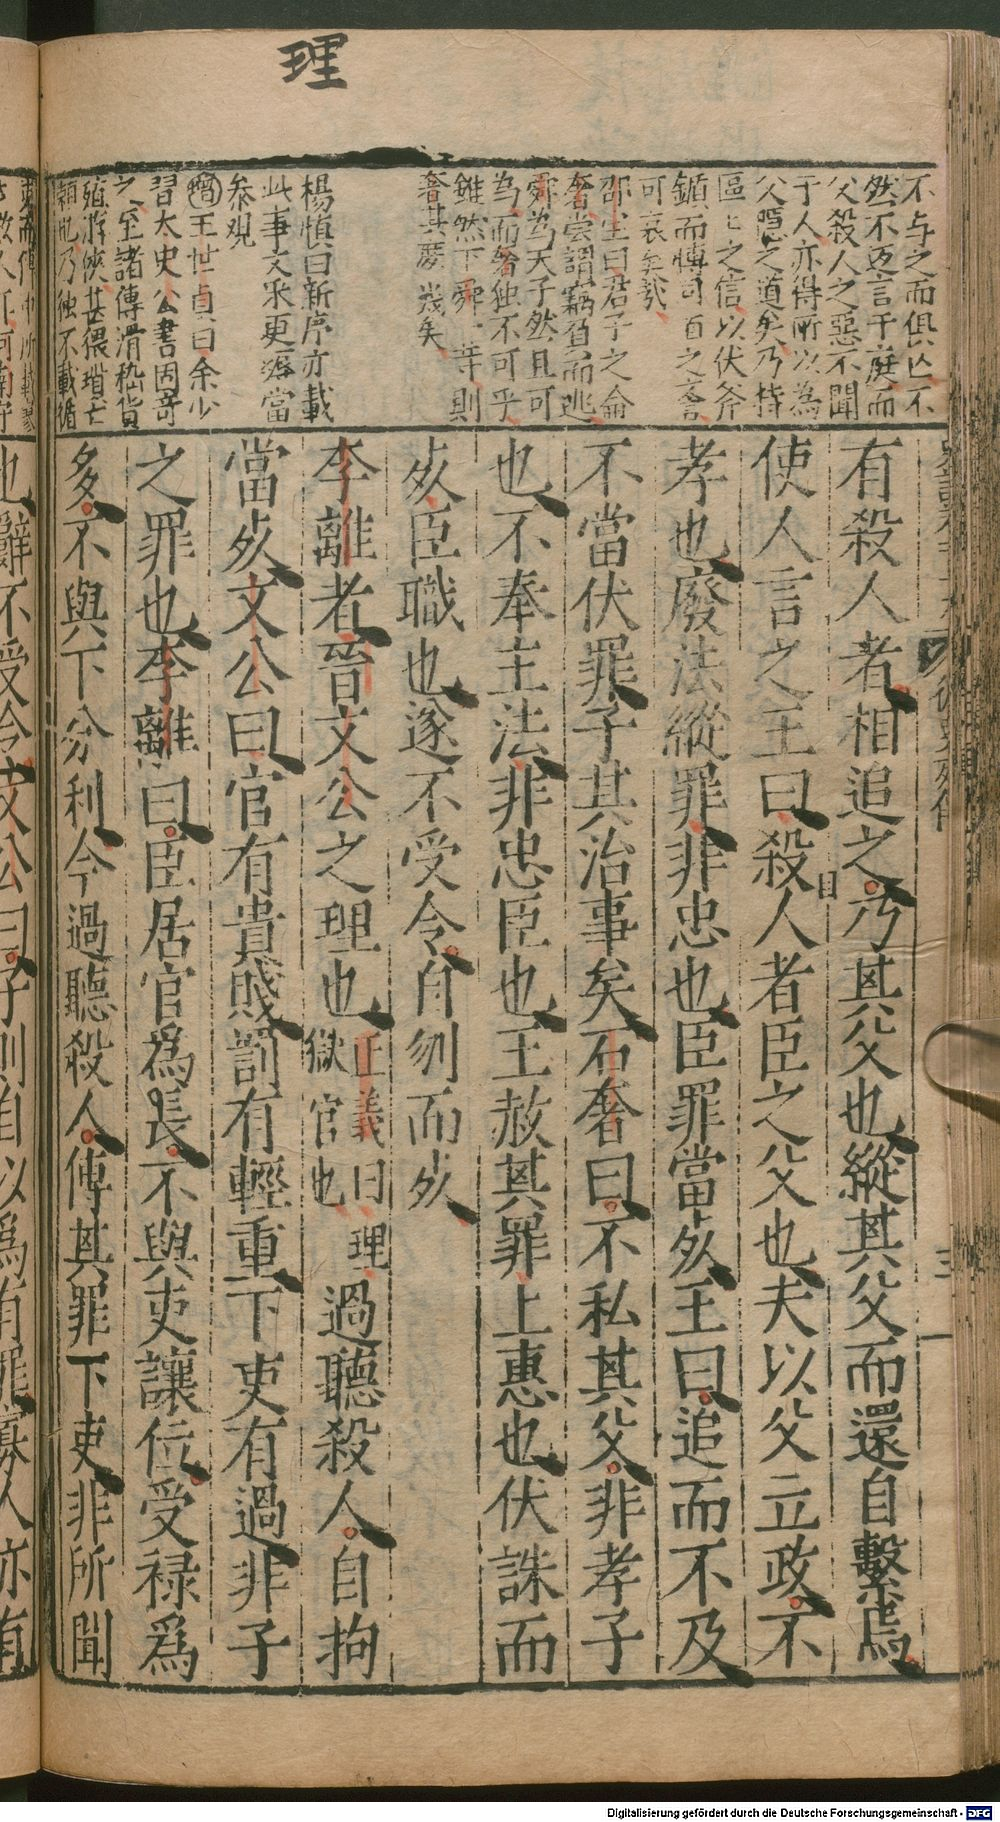 理
不与之而俱亡不
然不返言于庭而
父殺人之惡不聞
于人亦得所以為
父隱之道矣乃持
區區之信以伏斧
鑕而愽司直之譽
可哀矣哉
邵宝曰君子之論
奢嘗謂竊負而逃
舜为天子然且可
为而奢独不可乎
雖然下舜一等則
奢其庶幾矣
楊慎曰新序亦載
此事文采更滛當
叅观
增王世貞曰余少
習太史公書因奇
之至諸傳滑稽貨
殖游俠甚猥瑣亡
有殺人者相追之乃其父也縱其父而還自繫焉
使人言之王曰殺人者臣之父也夫以父立政不
孝也廢法縱罪非忠也臣罪當死王曰追而不及
不當伏罪子其治事矣石奢曰不私其父非孝子
也不奉主法非忠臣也王赦其罪上惠也伏誅而
死臣職也遂不受令自刎而死
李離者晉文公之理也正義曰理獄官也過聽殺人自拘
當死文公曰官有貴賤罰有輕重下吏有過非子
之罪也李離曰臣居官為長不與吏讓位受祿為
多不與下分利今過聽殺人傅其罪下吏非所聞
也辭不受令文公曰子則自以為有罪寡人亦有
循吏列傳
三
Digitalisierung gefördert durch die Deutsche Forschungsgemeinschaft - DFG